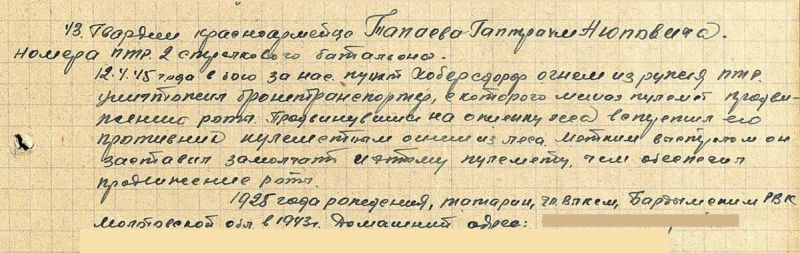 43. Гвардии красноармейца Тапаева Гаптрахм Аюповича.
номера птр. 2 стрелкового батальона.
12.4.45 года в бою за нас. пункт Хоберсдорф огнем из ружья птр.
уничтожил бронетранспортер, с которого мешал пулемет продви-
жению роты. Продвинувшись на опушку леса встретил его
противник пулеметным огнем из леса. Метким выстрелом он
заставил замолчать и этому пулемету, чем обеспечил
продвижение роты.
1925 года рождения, татарин, чл. влксм, Бардымским РВК
Молотовской обл. в 1943г. Домашний адрес: